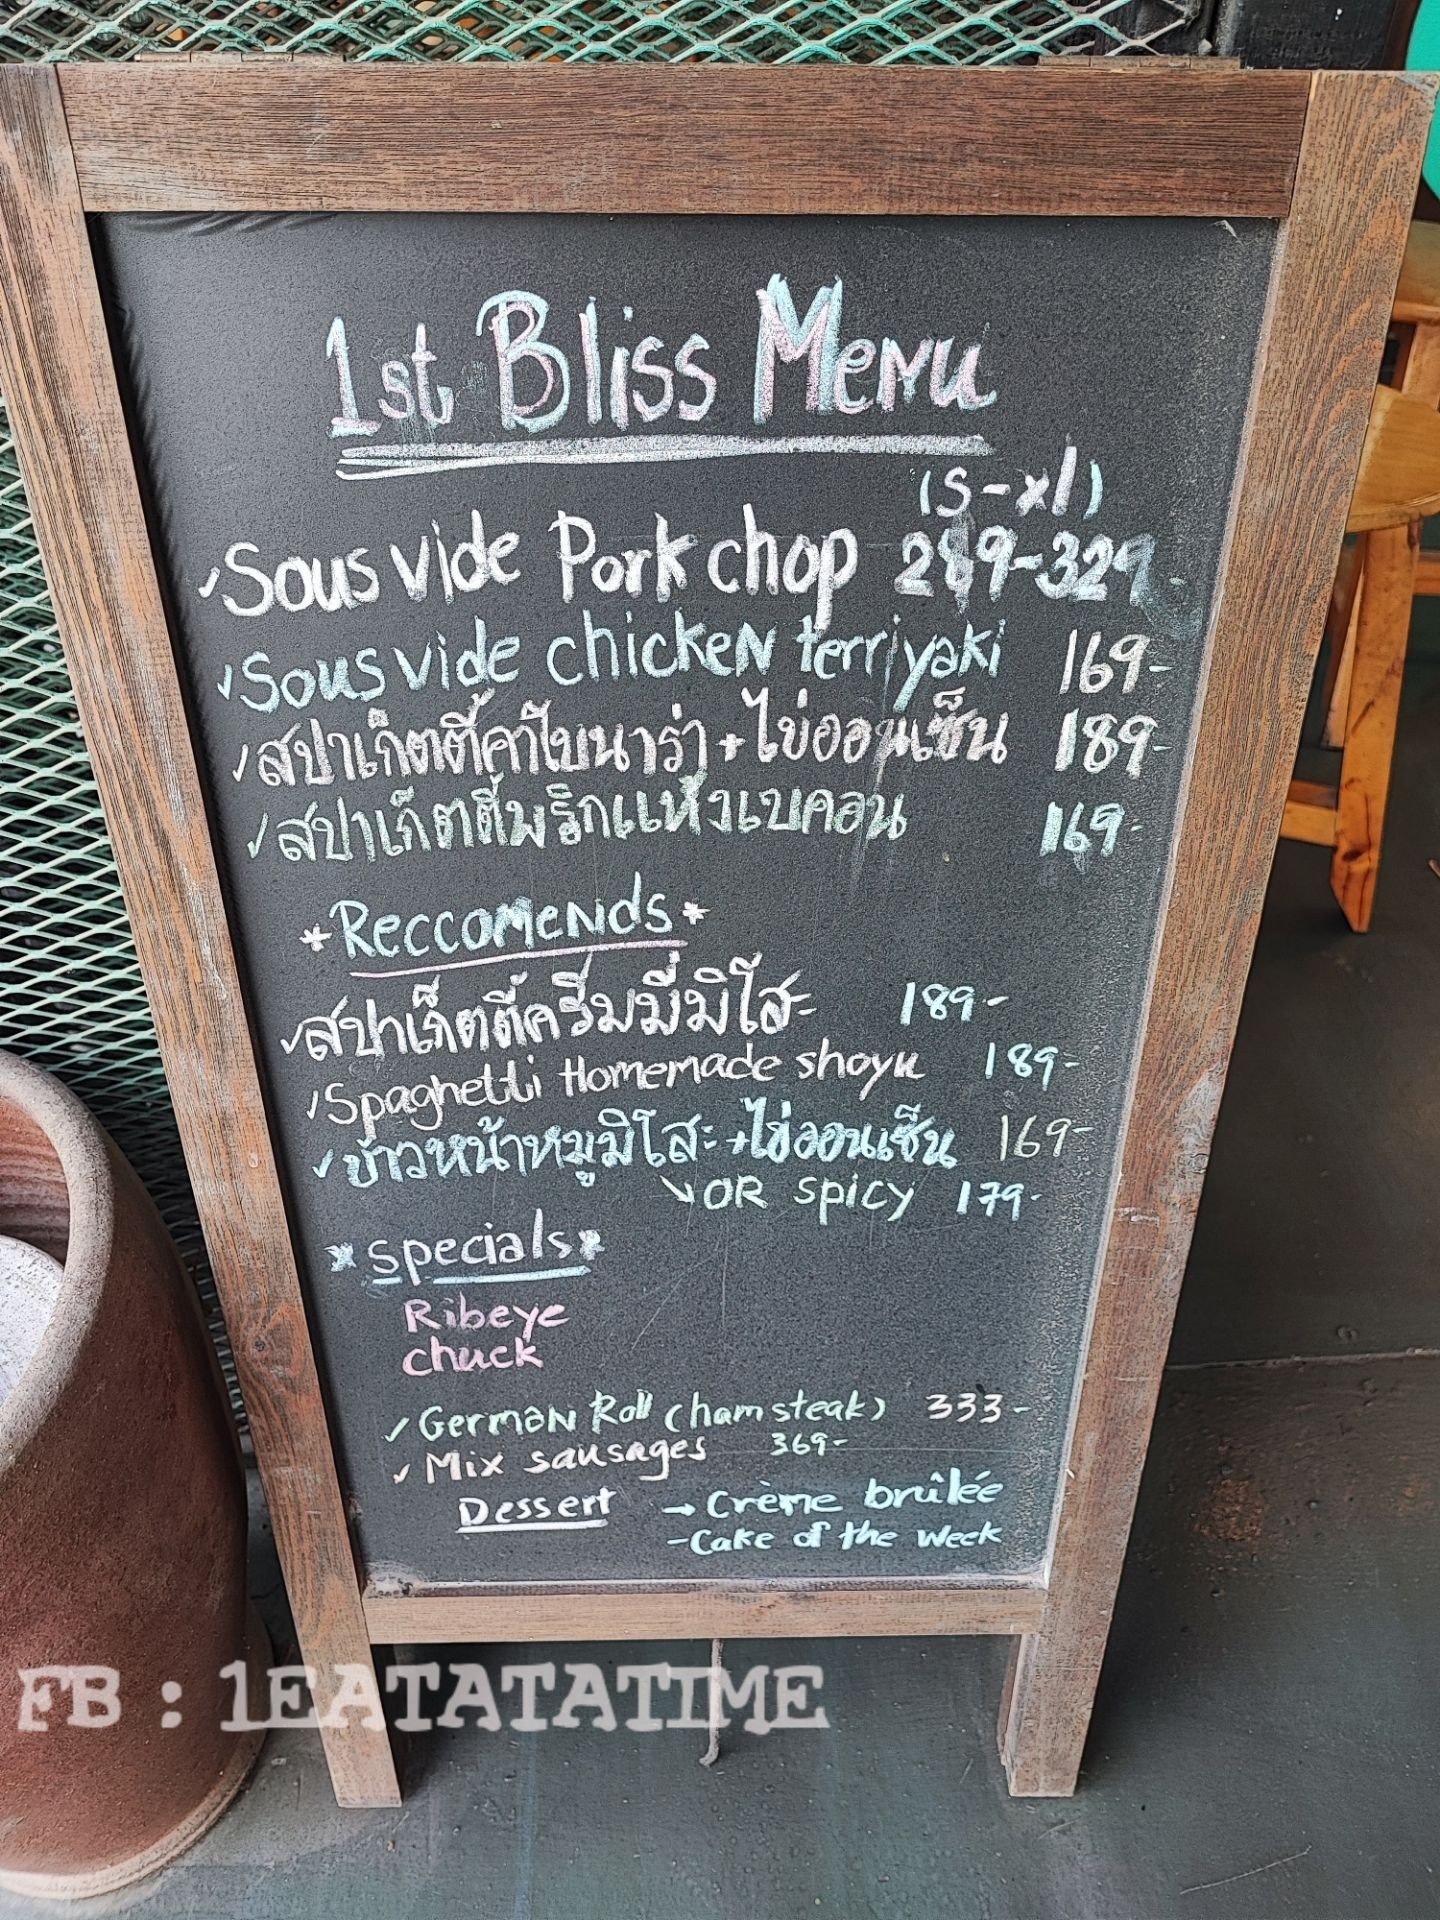 1st Bliss Menu
(S-xl)
✓Sous vide Pork chop 289-329-
✓Sous vide chicken terriyaki 169-
✓สปาเก็ตตี้คาโบนาร่า+ไข่ออนเซ็น 189-
✓สปาเก็ตตี้พริกแห้งเบคอน 169-
*Reccomends*
✓สปาเก็ตตี้ครีมมี่มิโสะ 189-
✓Spaghetti Homemade shoyu 189-
✓ข้าวหน้าหมูมิโสะ+ไข่ออนเซ็น 169-
↘OR spicy 179-
*Specials*
Ribeye
chuck
✓German Roll (ham steak) 333-
✓Mix sausages 369-
Dessert → Crème brûlée
-Cake of the week
FB : 1EATATATIME